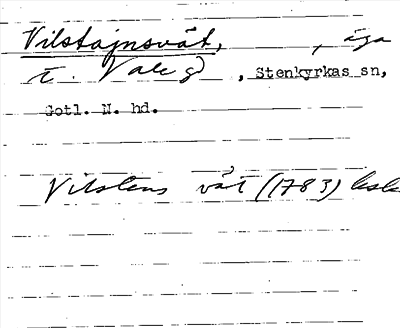 Vilstajnsvät, , äga
t. Vale g , Stenkyrkas sn,
Gotl. N. hd.
Vilstens vät (1783) lsk